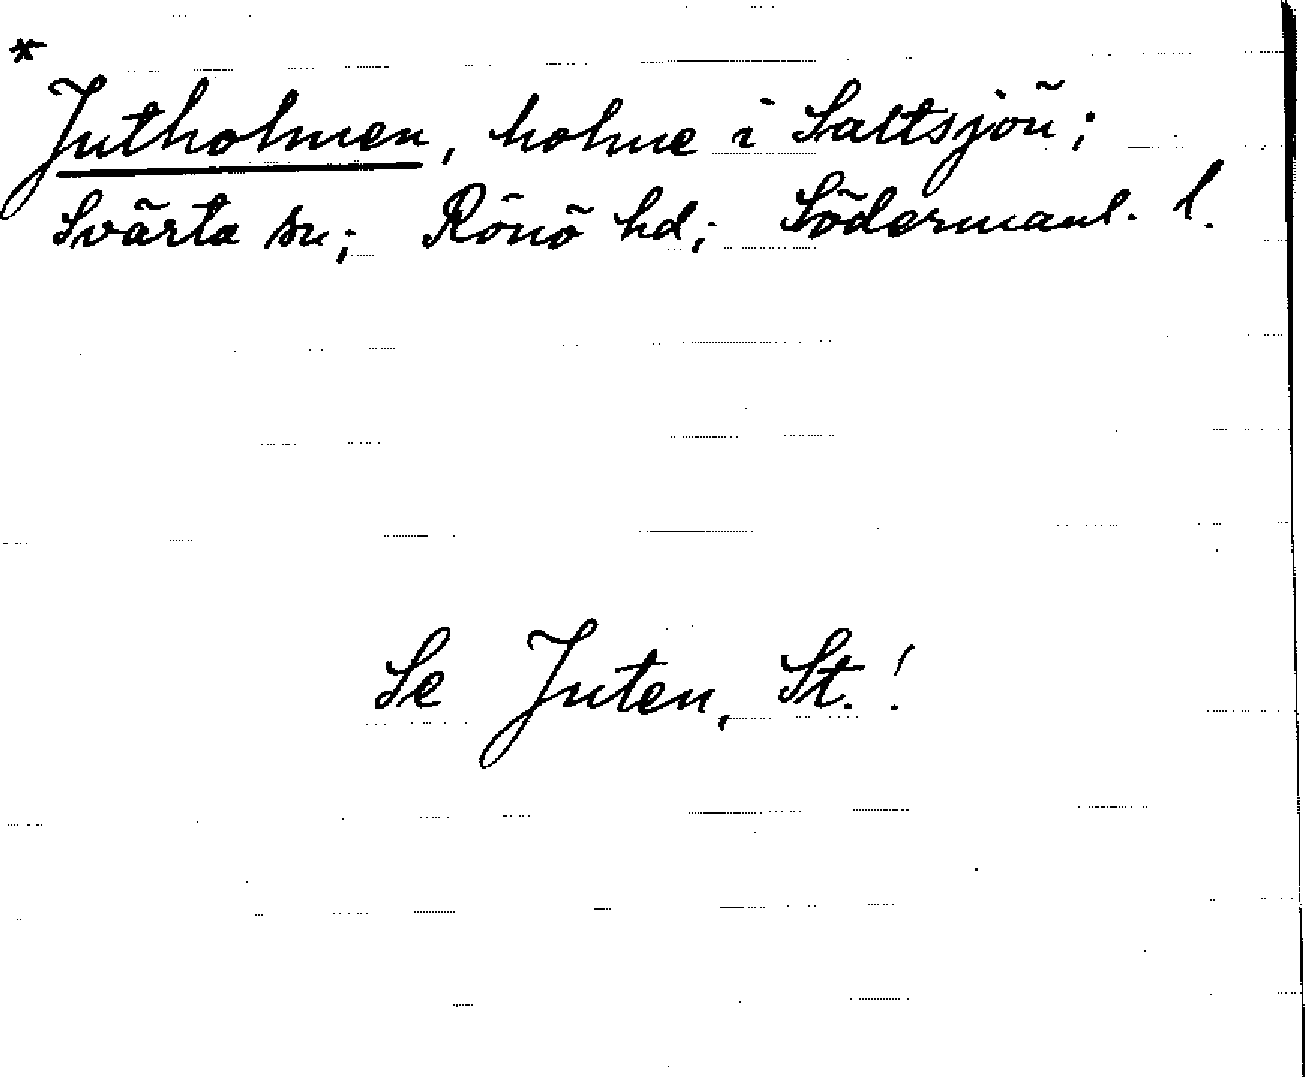 *
Jutholmen, holme i Saltsjön;
Svärta sn; Rönö hd; Södermanl. l.
Se Juten, St.!